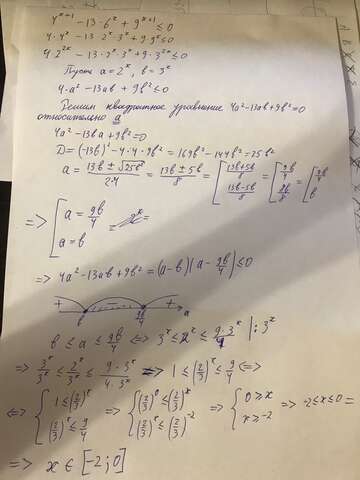 4^{x+1} - 13·6^x + 9^{x+1} ≤ 0
4·4^x - 13·2^x·3^x + 9·9^x ≤ 0
4·2^{2x} - 13·2^x·3^x + 9·3^{2x} ≤ 0
Пусть a = 2^x, b = 3^x
4·a² - 13ab + 9b² ≤ 0
Решим квадратное уравнение 4a² - 13ab + 9b² = 0
относительно a
4a² - 13ba + 9b² = 0
D = (-13b)² - 4·4·9b² = 169b² - 144b² = 25b²
a = (13b ± √25b²)/(2·4) = (13b ± 5b)/8 = [(13b+5b)/8 ; (13b-5b)/8 = [9b/4 ; 8b/8 = [9b/4 ; b
=> [a = 9b/4 ; a = b
=> 4a² - 13ab + 9b² = (a - b)(a - 9b/4) ≤ 0
+ - + b 9b/4 a
b ≤ a ≤ 9b/4 <=> 3^x ≤ 2^x ≤ 9·3^x/4 |: 3^x
=> 3^x/3^x ≤ 2^x/3^x ≤ 9·3^x/(4·3^x) => 1 ≤ (2/3)^x ≤ 9/4 <=>
<=> {1 ≤ (2/3)^x ; (2/3)^x ≤ 9/4 => {(2/3)^0 ≤ (2/3)^x ; (2/3)^x ≤ (2/3)^{-2} => {0 ≥ x ; x ≥ -2 => -2 ≤ x ≤ 0 =
=> x ∈ [-2; 0]